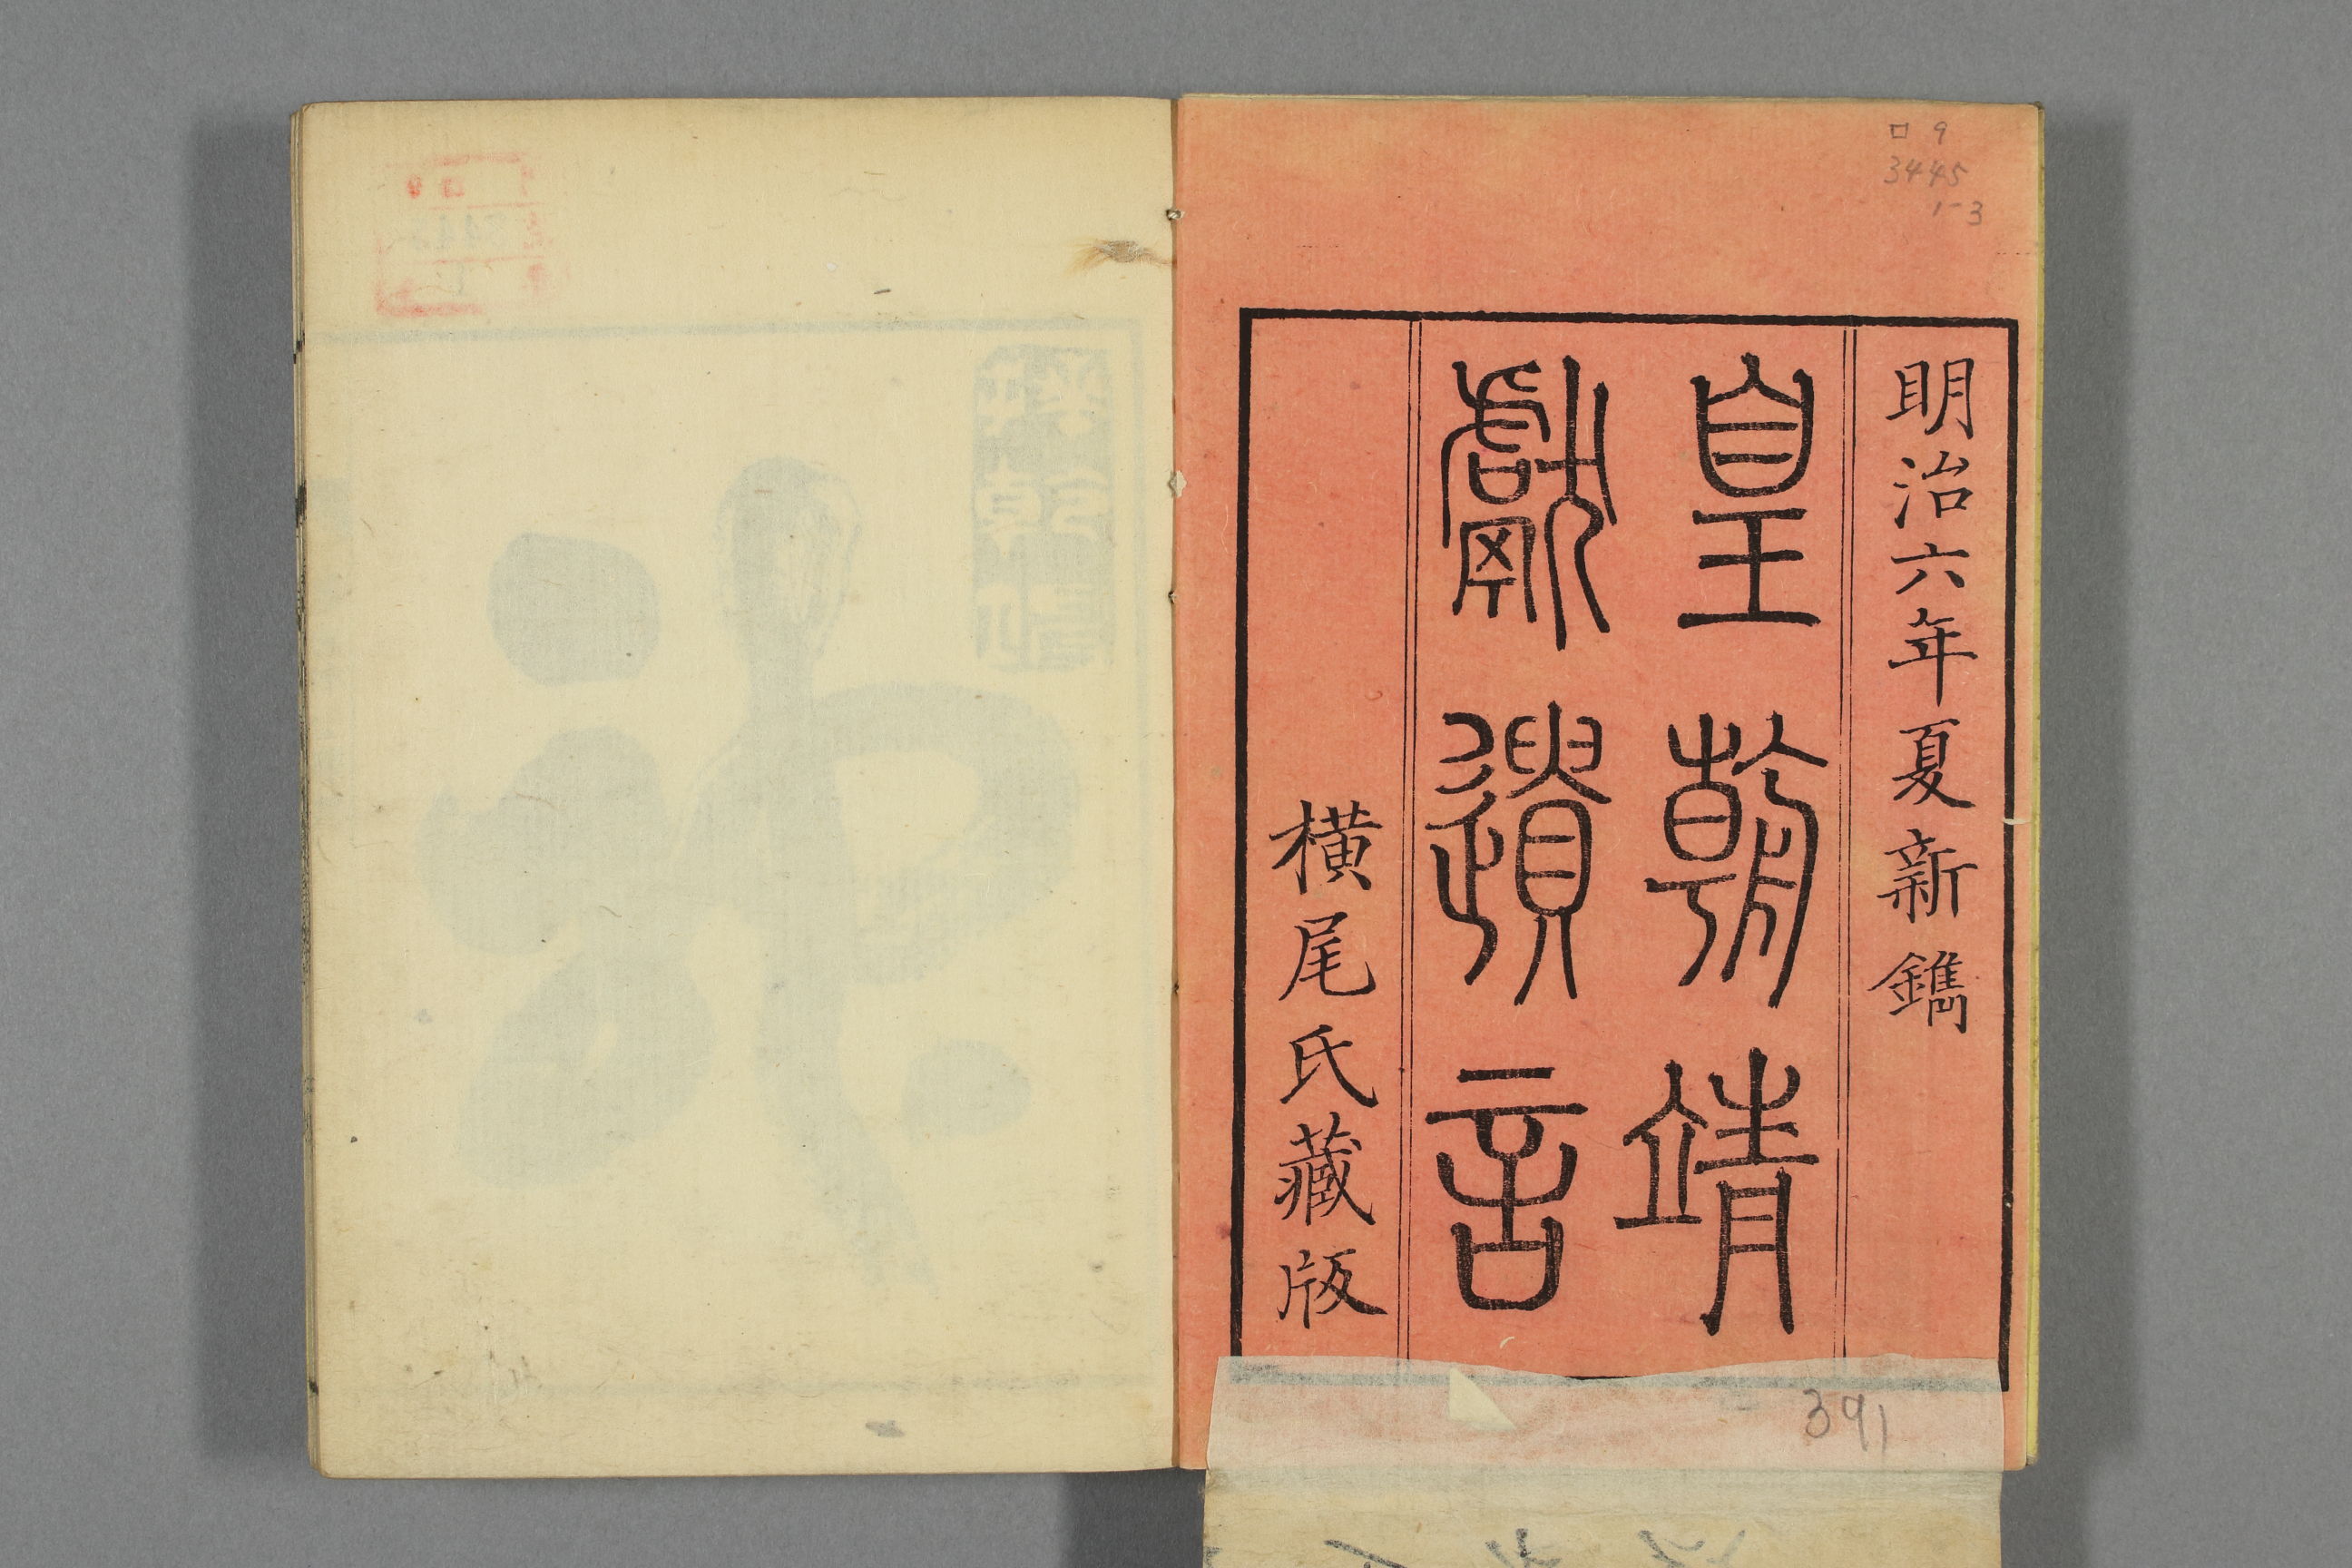 ロ 9
3445
1-3
明治六年夏新鐫
皇朝靖
獻遺言
橫尾氏藏版
391